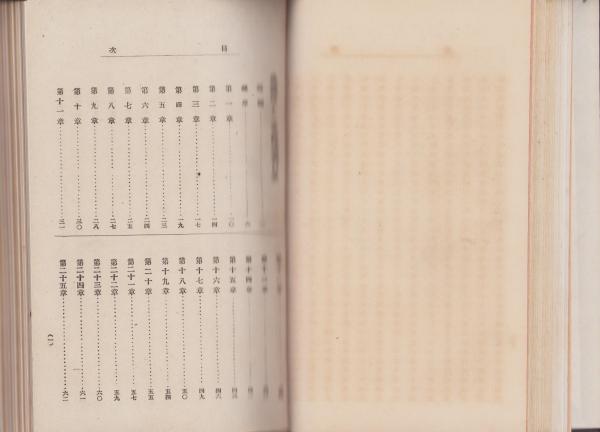 目次
第一章
第二章……一四
第三章……一七
第四章……一九
第五章……二三
第六章……二四
第七章……二五
第八章……二七
第九章……二八
第十章……三〇
第十一章……三一
第十四章
第十五章
第十六章……四六
第十七章……四九
第十八章……五〇
第十九章……五四
第二十章……五五
第二十一章……五七
第二十二章……五九
第二十三章……六〇
第二十四章……六一
第二十五章……六二
(一)